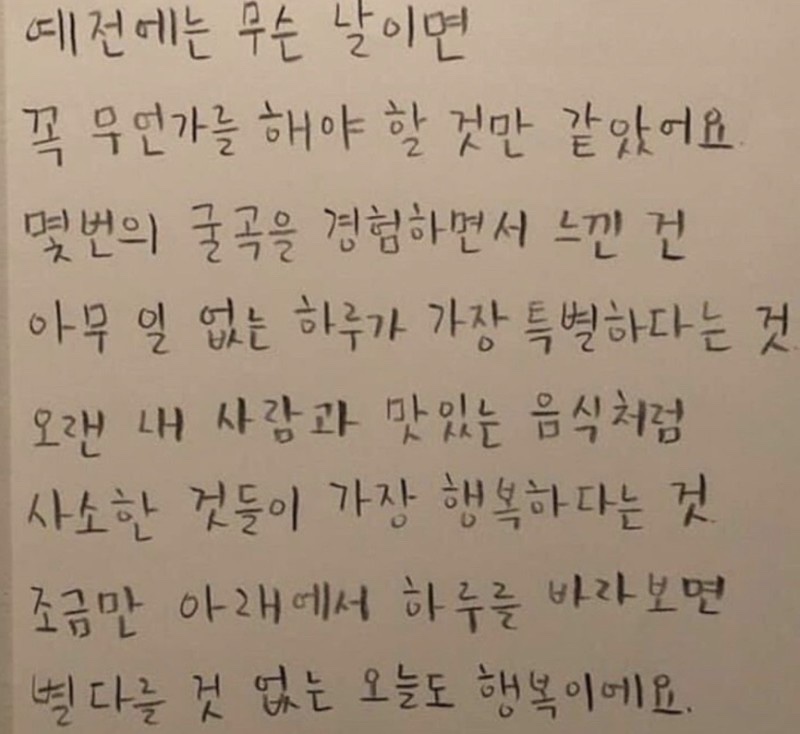 예전에는 무슨 날이면
꼭 무언가를 해야 할 것만 같았어요.
몇번의 굴곡을 경험하면서 느낀 건
아무 일 없는 하루가 가장 특별하다는 것.
오랜 내 사람과 맛있는 음식처럼
사소한 것들이 가장 행복하다는 것.
조금만 아래에서 하루를 바라보면
별다를 것 없는 오늘도 행복이에요.